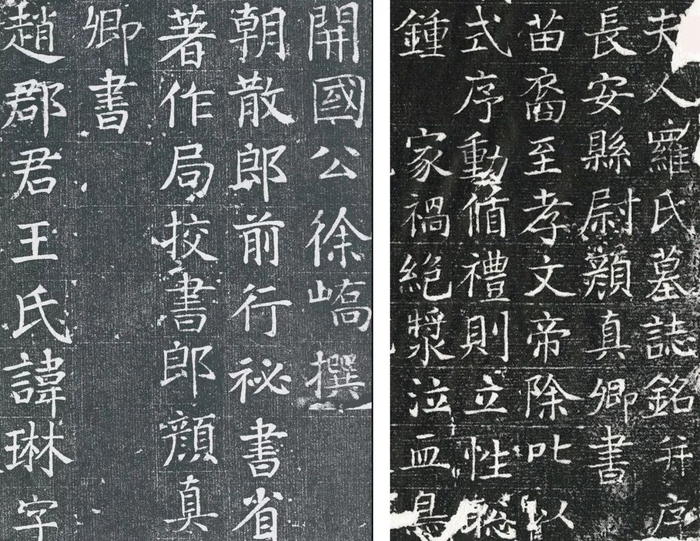 開國公徐嶠撰
朝散郎前行祕書省
著作局挍書郎顏真
卿書
趙郡君王氏諱琳字
夫人羅氏墓誌銘并序
長安縣尉顏真卿書
苗裔至孝文帝除叱以
式序動循禮則立性聡
鍾 家禍絕漿泣血具